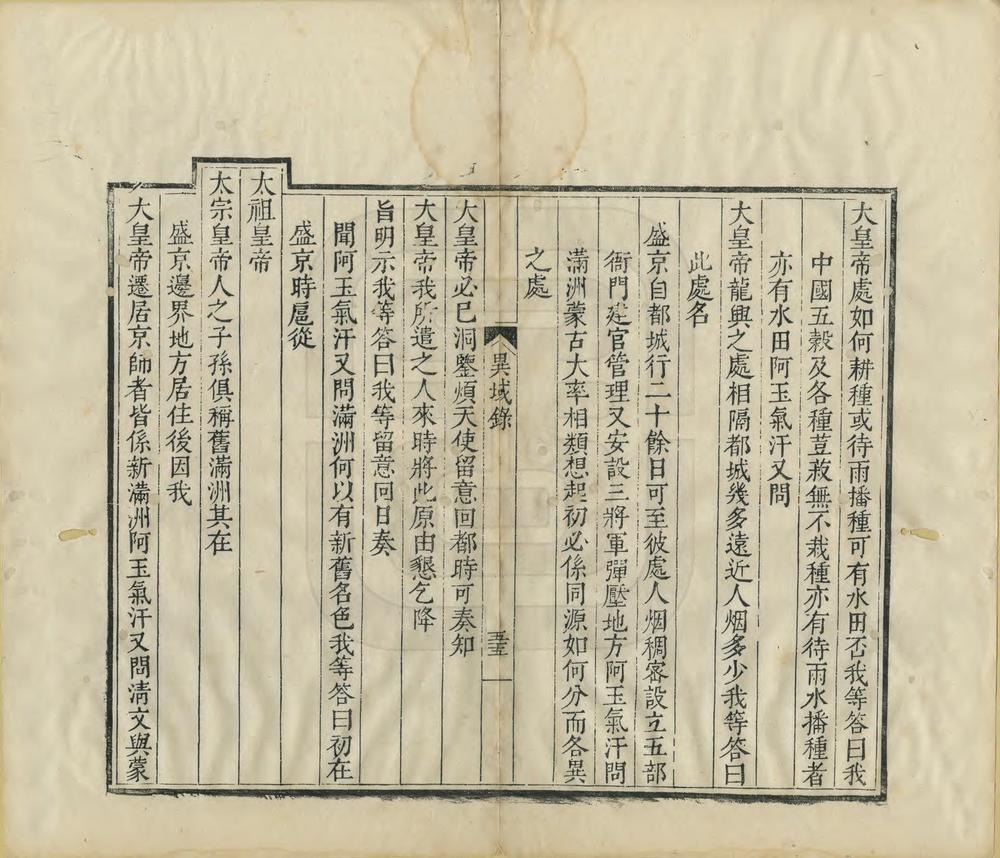 大皇帝處如何耕種或待雨播種可有水田否我等答曰我
中國五穀及各種荳菽無不栽種亦有待雨水播種者
亦有水田阿玉氣汗又問
大皇帝龍興之處相隔都城幾多遠近人烟多少我等答曰
此處名
盛京自都城行二十餘日可至彼處人烟稠密設立五部
衙門建官管理又安設三將軍彈壓地方阿玉氣汗問
滿洲蒙古大率相類想起初必係同源如何分而各異
之處
異域錄
大皇帝必已洞鑒煩天使留意回都時可奏知
大皇帝我所遣之人來時將此原由懇乞降
旨明示我等答曰我等留意回日奏
聞阿玉氣汗又問滿洲何以有新舊名色我等答曰初在
盛京時扈從
太祖皇帝
太宗皇帝人之子孫俱稱舊滿洲其在
盛京邊界地方居住後因我
大皇帝遷居京師者皆係新滿洲阿玉氣汗又問淸文與蒙